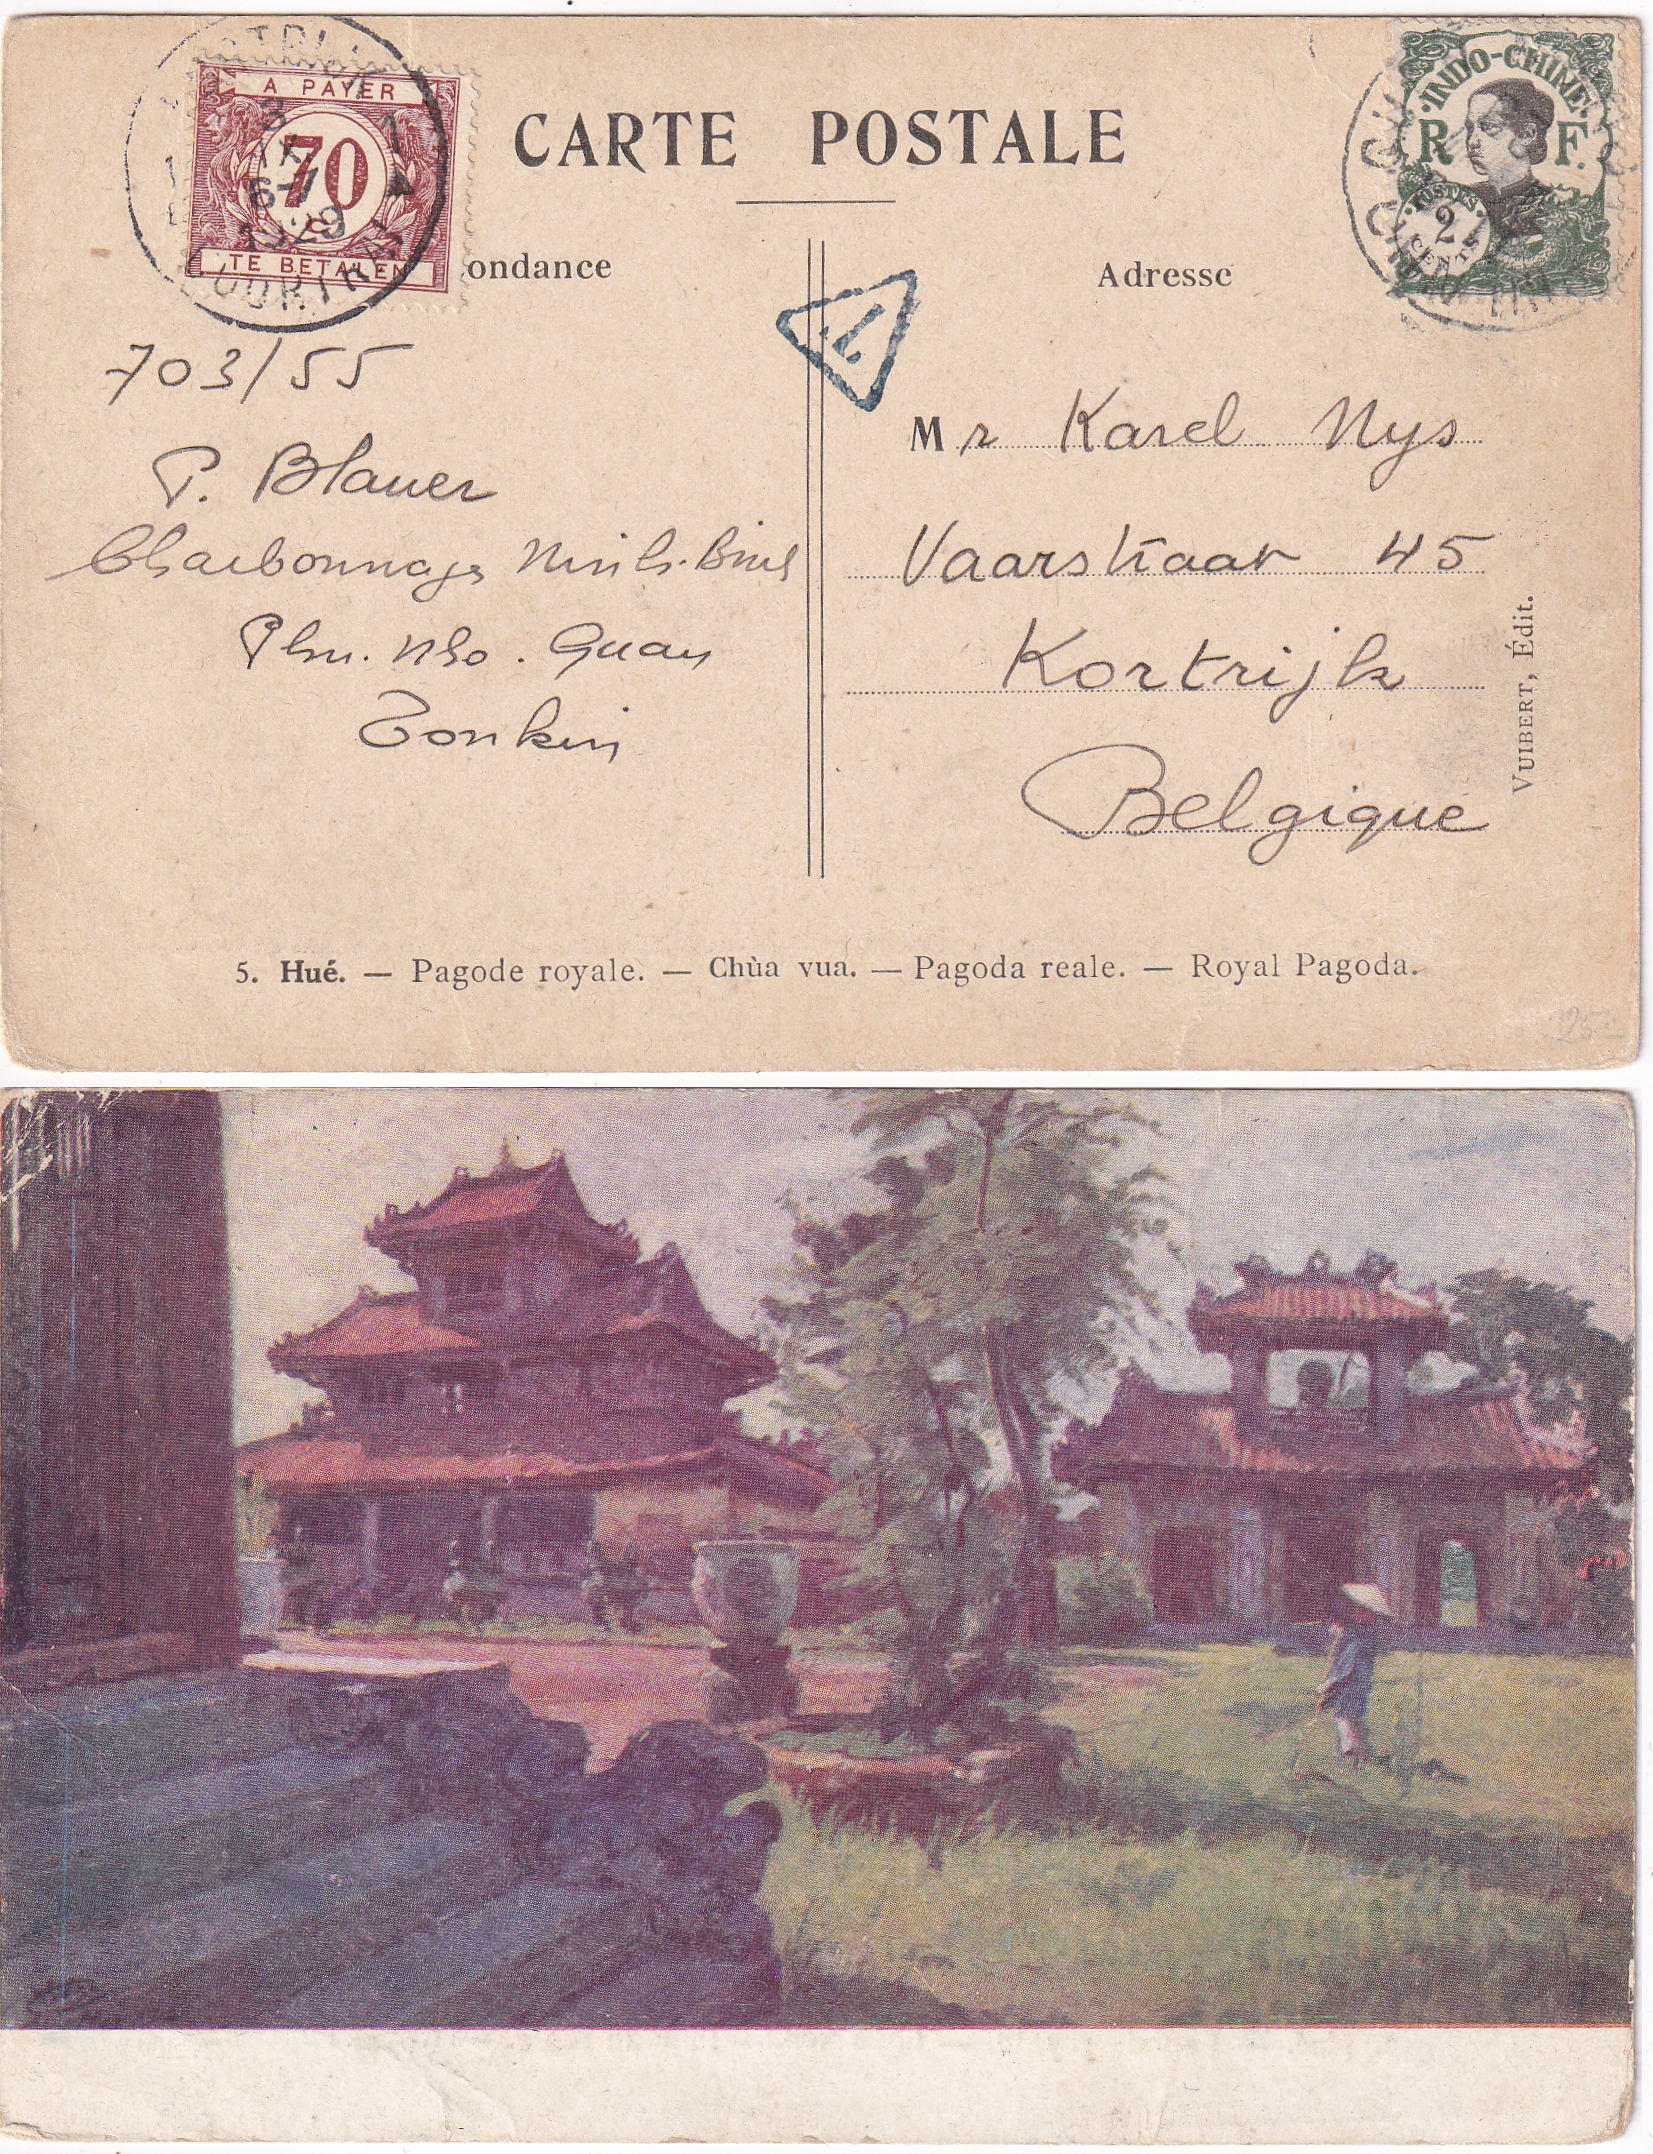 A PAYER
70
TE BETALEN
1929
COURTRAI
CARTE POSTALE
INDO-CHINE
R F.
POSTES
2
CENTS
ondance
Adresse
T
703/55
P. Blauer
Charbonnages Ninh-Binh
Phu. Nho. Quan
Tonkin
Mr Karel Nys
Vaarstraat 45
Kortrijk
Belgique
VUIBERT, Édit.
5. Hué. — Pagode royale. — Chùa vua. — Pagoda reale. — Royal Pagoda.